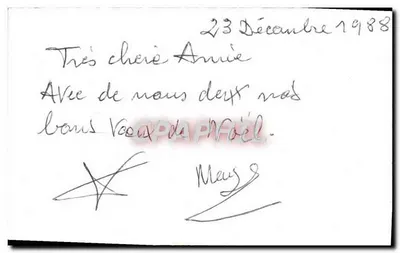 23 Décembre 1988
Très chère Annie
Avec de nous deux nos
bons voeux de Noël.